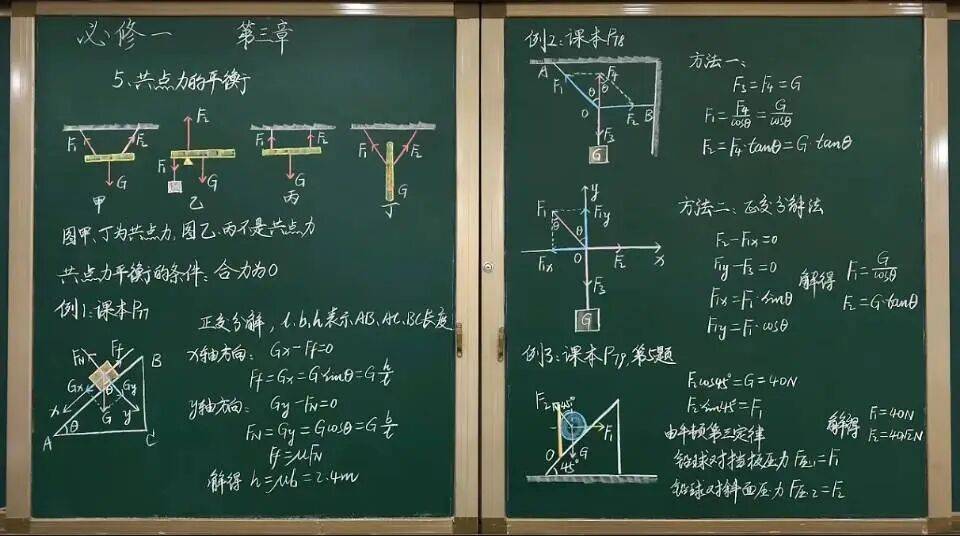 必修一 第三章
5、共点力的平衡
F₁ F₂ G 甲
F₂ F₁ G 乙
F₁ F₂ G 丙
F₁ F₂ G 丁
图甲、丁为共点力，图乙、丙不是共点力
共点力平衡的条件：合力为0
例1：课本P77
正交分解，l、b、h表示AB、AC、BC长度
x轴方向：Gx-Ff=0
Ff=Gx=G·sinθ=G h/l
y轴方向：Gy-FN=0
FN=Gy=Gcosθ=G b/l
Ff=μFN
解得 h=μb=2.4m
FN Ff B
Gx θ Gy
x G y
A θ C
例2：课本P78
A F₁ F₄ θ θ
O F₂ B
F₃
G
方法一、
F₃=F₄=G
F₁=F₄/cosθ=G/cosθ
F₂=F₄·tanθ=G·tanθ
y
F₁ F₁y
θ θ
F₁x O F₂ x
F₃
G
方法二、正交分解法
F₂-F₁x=0
F₁y-F₃=0
F₁x=F₁·sinθ
F₁y=F₁·cosθ
解得 F₁=G/cosθ
F₂=G·tanθ
例3：课本P79，第5题
F₂ 45° F₁
O G
45°
F₂cos45°=G=40N
F₂sin45°=F₁
解得 F₁=40N
F₂=40√2N
由牛顿第三定律
铅球对挡板压力F压1=F₁
铅球对斜面压力F压2=F₂